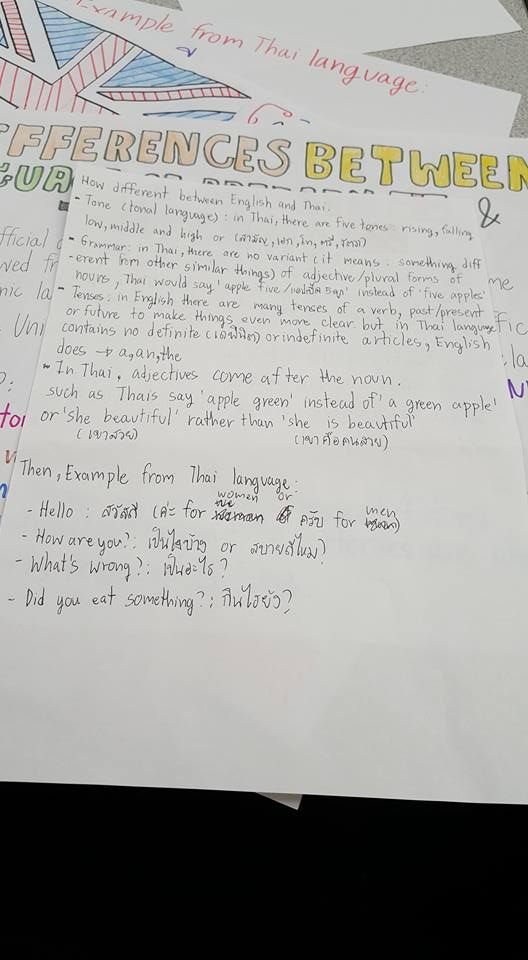 Example from Thai language:
FFERENCES BETWEEN
GUA
&
How different between English and Thai.
- Tone (tonal language) : in Thai, there are five tones : rising, falling
low, middle and high or (สามัญ, เอก, โท, ตรี, จัตวา)
- Grammar: in Thai, there are no variant (it means : something diff
-erent from other similar things) of adjective/plural forms of
nouns, Thai would say 'apple five /แอปเปิล 5ลูก' instead of 'five apples'
- Tenses: in English there are many tenses of a verb, past/present
or future to make things even more clear but in Thai language
contains no definite (เดฟินิท) or indefinite articles, English
does → a,an,the
- In Thai, adjectives come after the noun.
such as Thais say 'apple green' instead of 'a green apple'
or 'she beautiful' rather than 'she is beautiful'
(เขาสวย) (เขาคือคนสวย)
Then, Example from Thai language:
- Hello : สวัสดี (ค่ะ for women or ครับ for men)
- How are you?: เป็นไงบ้าง or สบายดีไหม?
- What's wrong?: เป็นอะไร?
- Did you eat something?: กินไรยัง?